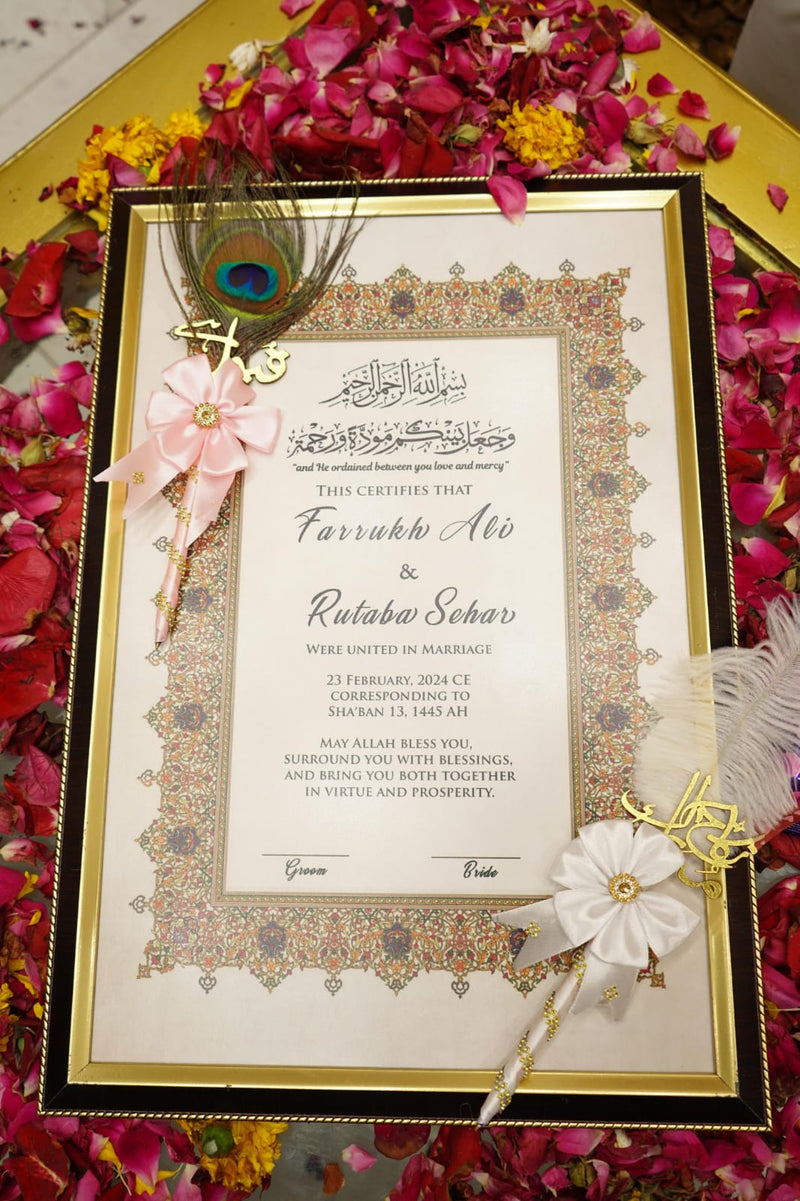 بسم الله الرحمن الرحيم
وجعل بينكم مودة ورحمة
"and He ordained between you love and mercy"
THIS CERTIFIES THAT
Farrukh Ali
&
Rutaba Sehar
WERE UNITED IN MARRIAGE
23 FEBRUARY, 2024 CE
CORRESPONDING TO
SHA'BAN 13, 1445 AH
MAY ALLAH BLESS YOU,
SURROUND YOU WITH BLESSINGS,
AND BRING YOU BOTH TOGETHER
IN VIRTUE AND PROSPERITY.
Groom Bride